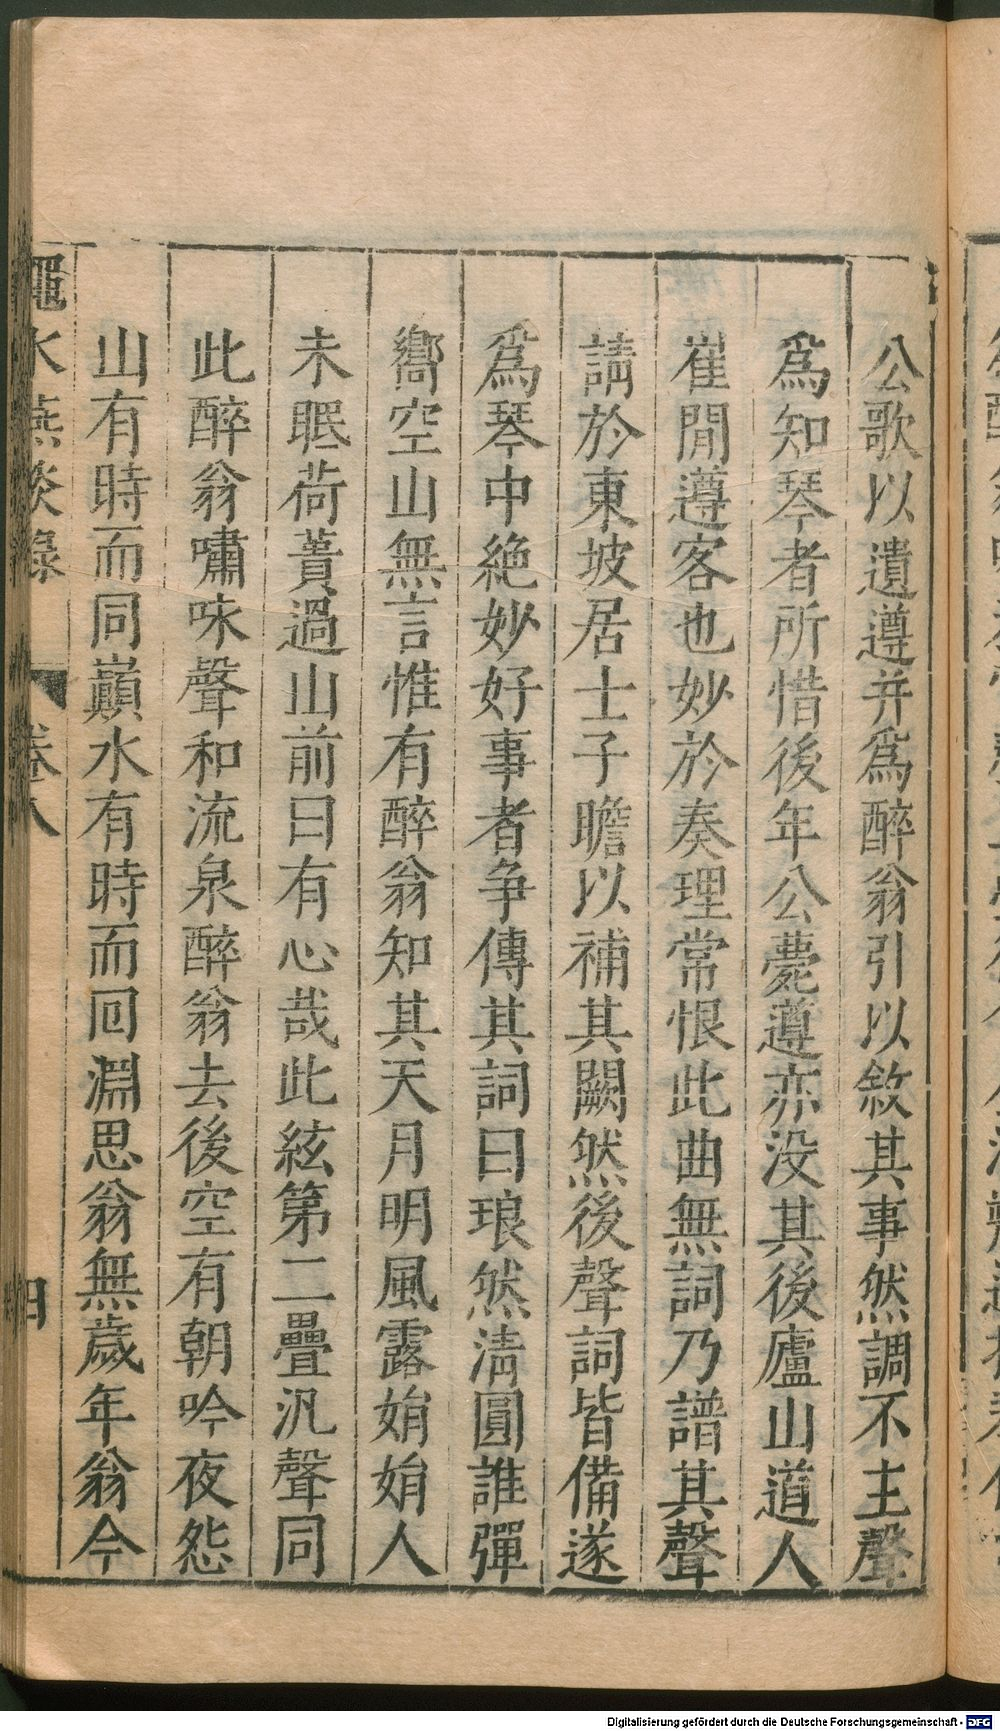 公歌以遺遵并爲醉翁引以敘其事然調不主聲
爲知琴者所惜後年公薨遵亦没其後廬山道人
崔閒遵客也妙於奏理常恨此曲無詞乃譜其聲
請於東坡居士子瞻以補其闕然後聲詞皆備遂
爲琴中絶妙好事者争傳其詞曰琅然淸圓誰彈
嚮空山無言惟有醉翁知其天月明風露娟娟人
未眠荷蕢過山前曰有心哉此絃第二疊汎聲同
此醉翁嘯咏聲和流泉醉翁去後空有朝吟夜怨
山有時而同巓水有時而回淵思翁無歲年翁今
澠水燕談錄
卷八
四
Digitalisierung gefördert durch die Deutsche Forschungsgemeinschaft - DFG